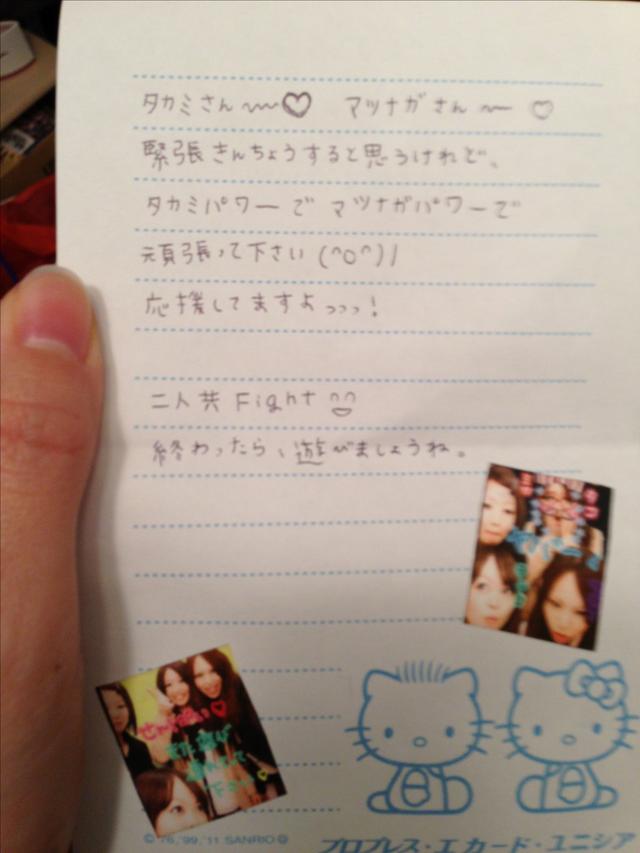 タカミさん〜♡ マツナガさん〜♡
緊張きんちょうすると思うけれど、
タカミパワーで マツナガパワーで
頑張って下さい (^o^)丿
応援してますよっっっ!
二人共 Fight
終わったら、遊びましょうね。
© '76,'99,'11 SANRIO
プロプレス・エカード・ユニシア